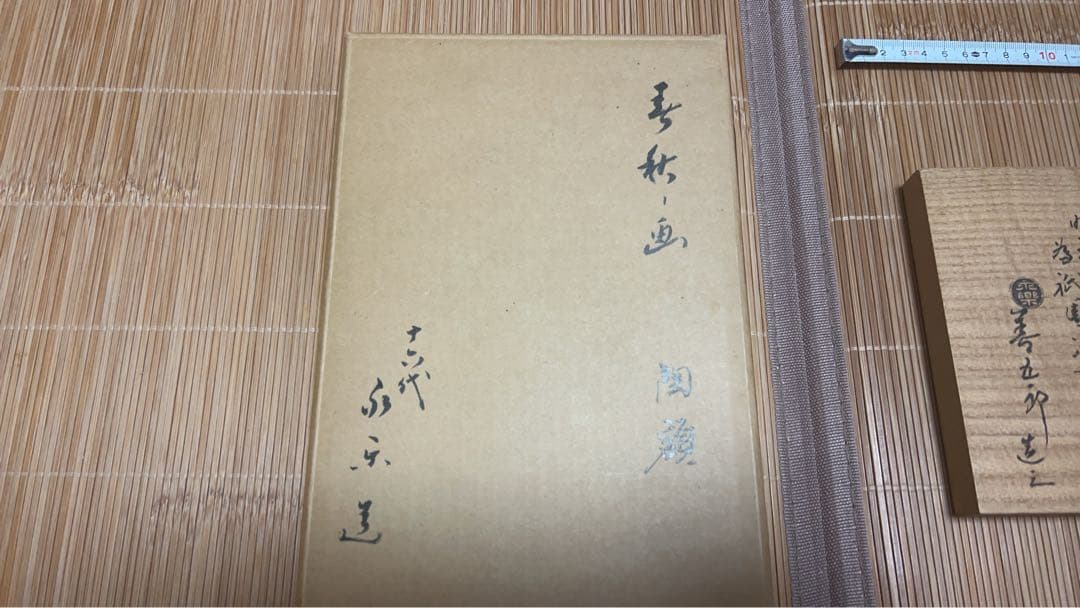 春秋ノ画 陶額
十六代
永楽 造
2 3 4 5 6 7 8 9 10 1
為祇園
善五郎 造之